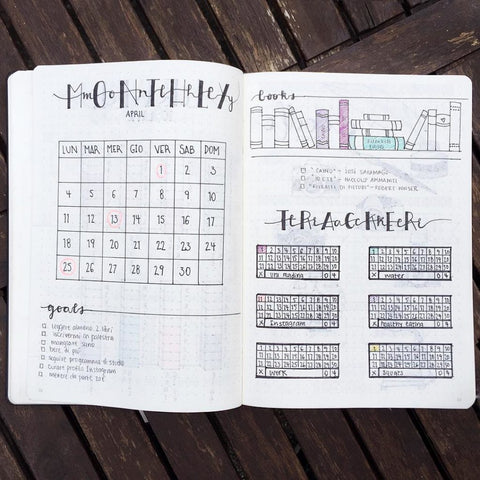 MONTHLY
APRIL
LUN MAR MER GIO VER SAB DOM
1 2 3
4 5 6 7 8 9 10
11 12 13 14 15 16 17
18 19 20 21 22 23 24
25 26 27 28 29 30
goals
leggere almeno 2 libri
iscrivermi in palestra
mangiare sano
bere di più
seguire programma di studio
curare profilo Instagram
mettere da parte
books
"CAINO" - JOSÉ SARAMAGO
"IO E TE" - NICCOLÒ AMMANITI
"RITRATTI DI PITTORI" - ROBERT WALSER
TRACKER
1 2 3 4 5 6 7 8 9 10
11 12 13 14 15 16 17 18 19 20
21 22 23 24 25 26 27 28 29 30
X Uni Reading 0 4
1 2 3 4 5 6 7 8 9 10
11 12 13 14 15 16 17 18 19 20
21 22 23 24 25 26 27 28 29 30
X water 0 4
1 2 3 4 5 6 7 8 9 10
11 12 13 14 15 16 17 18 19 20
21 22 23 24 25 26 27 28 29 30
X Instagram 0 4
1 2 3 4 5 6 7 8 9 10
11 12 13 14 15 16 17 18 19 20
21 22 23 24 25 26 27 28 29 30
X healthy eating 0 4
1 2 3 4 5 6 7 8 9 10
11 12 13 14 15 16 17 18 19 20
21 22 23 24 25 26 27 28 29 30
X work 0 4
1 2 3 4 5 6 7 8 9 10
11 12 13 14 15 16 17 18 19 20
21 22 23 24 25 26 27 28 29 30
X Squats 0 4